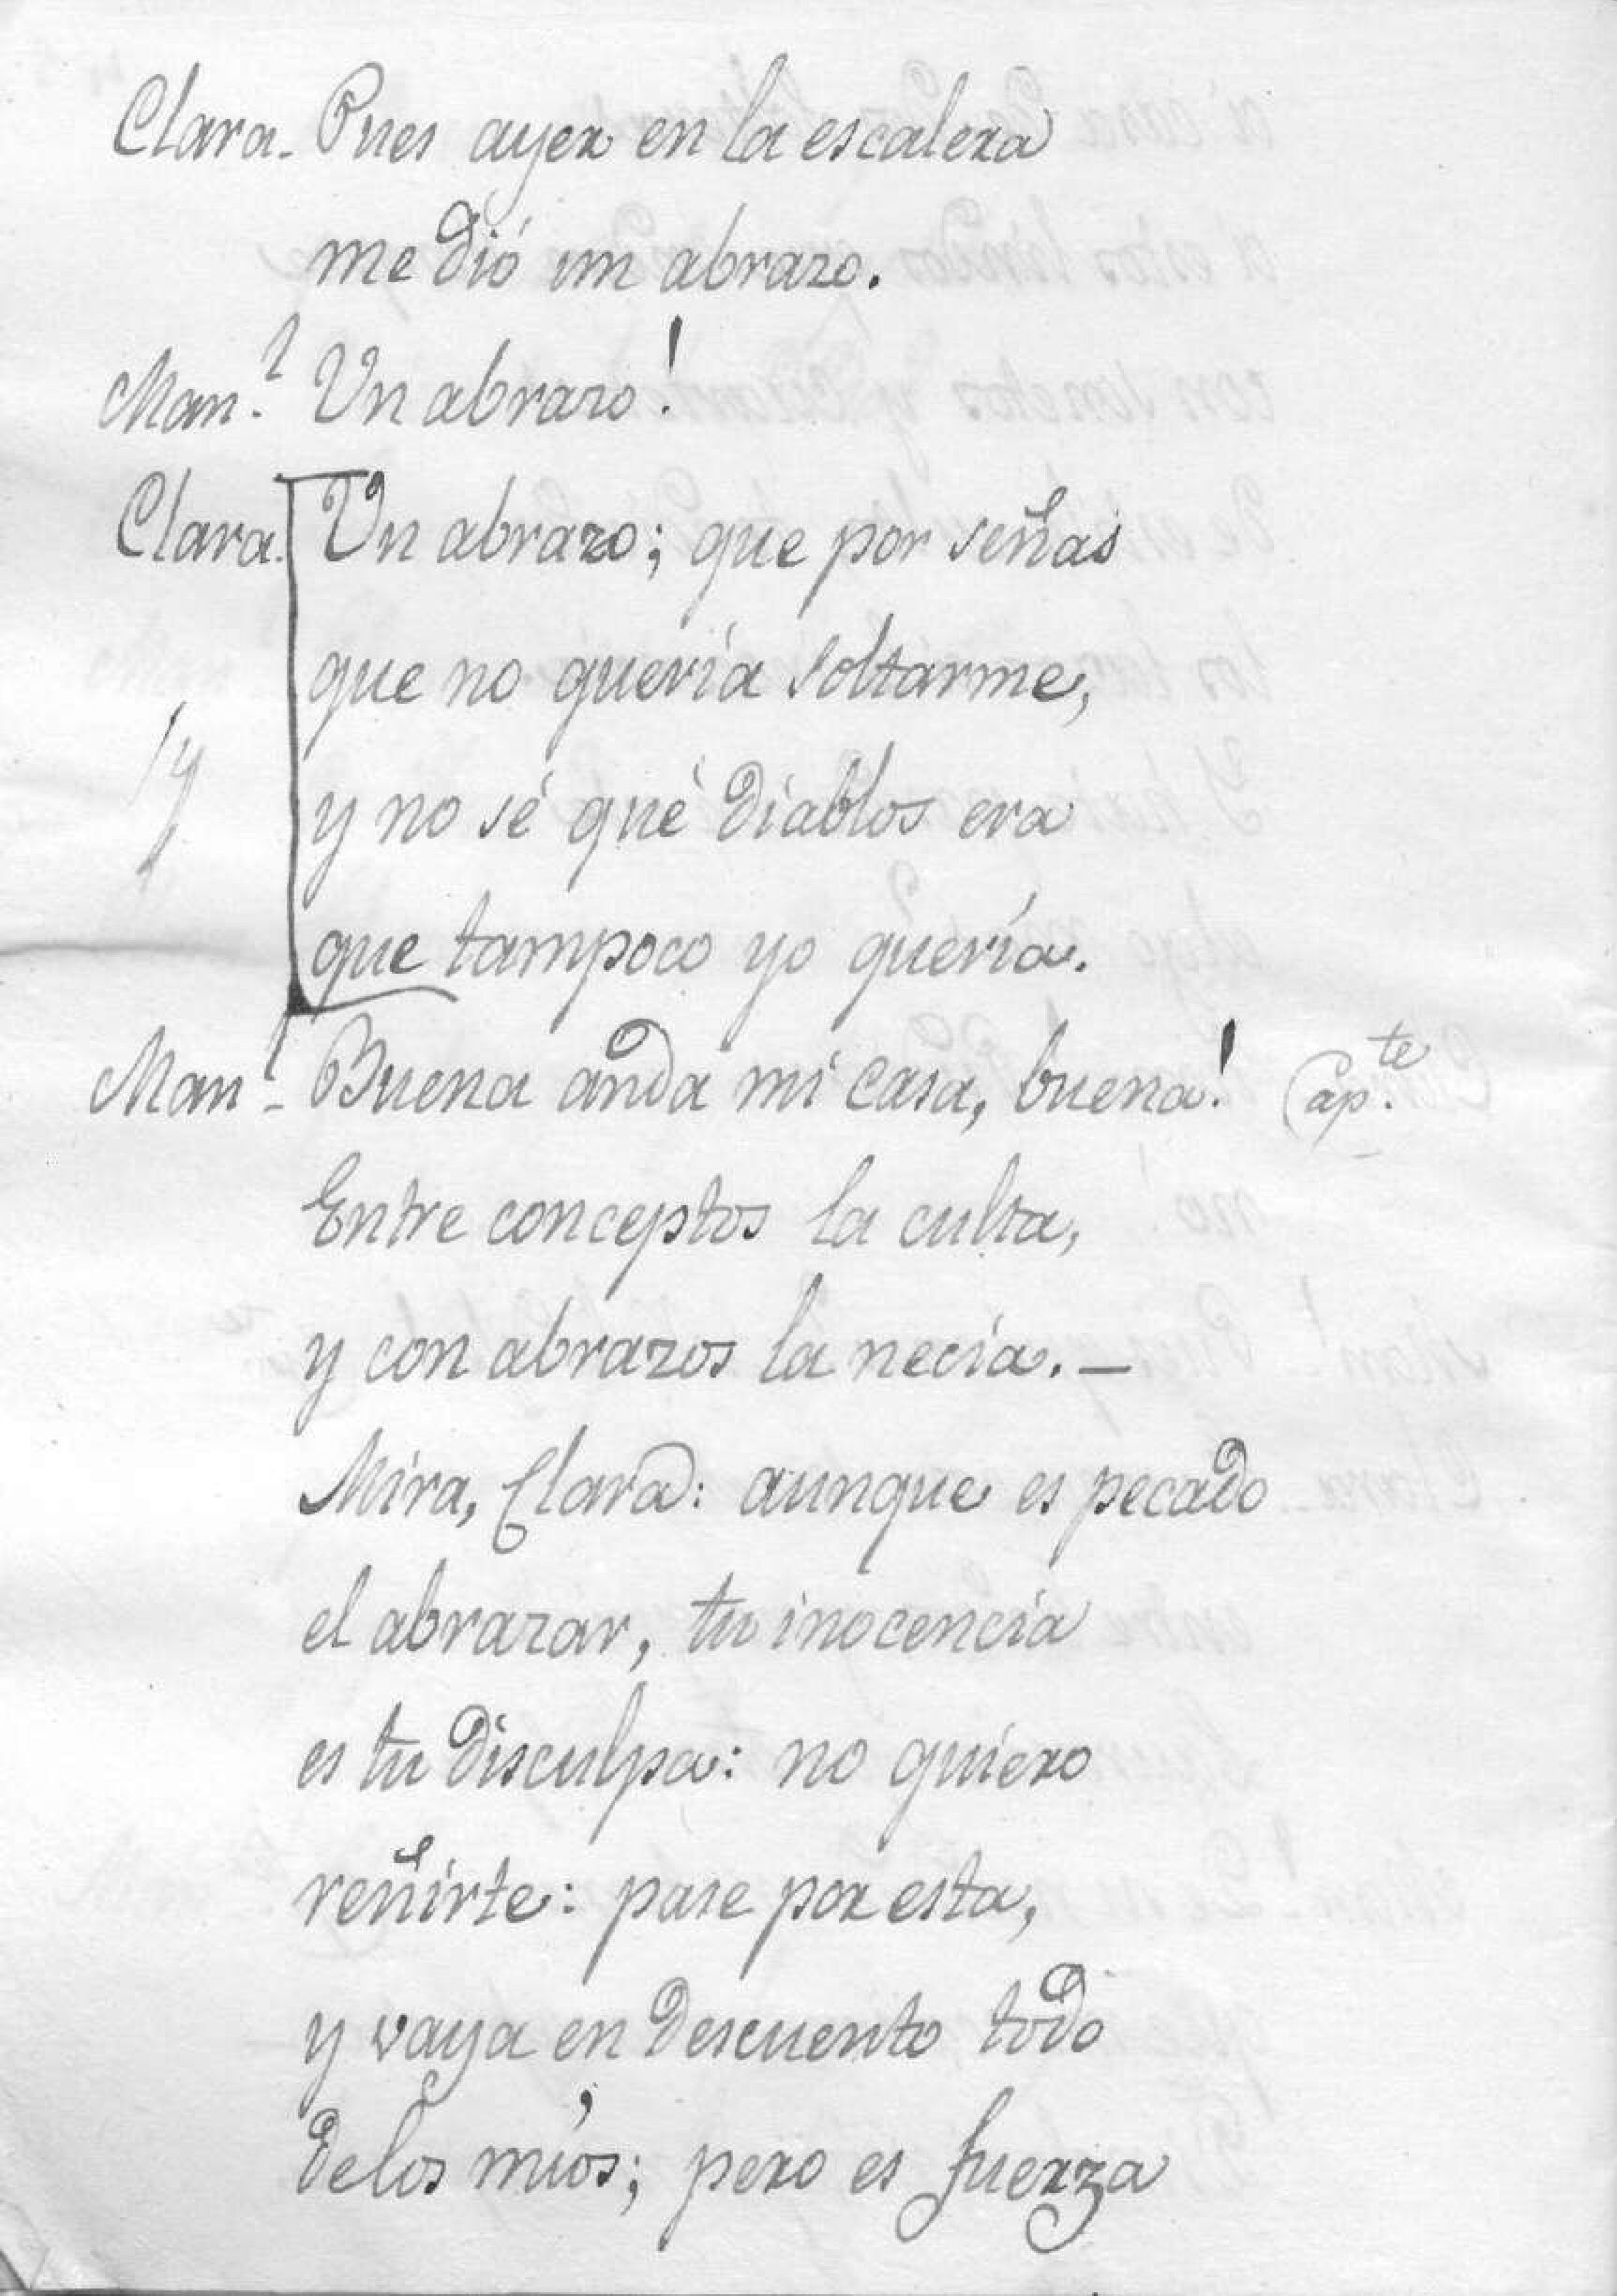 Clara. Pues ayer en la escalera
me dió un abrazo.
Man.l Un abrazo!
Clara. Un abrazo; que por señas
que no quería soltarme,
y no sé què diablos era
que tampoco yo quería.
Man.l Buena anda mi casa, buena! (ap.te
Entre conceptos la culta,
y con abrazos la necia. —
Mira, Clara: aunque es pecado
el abrazar, tu inocencia
es tu disculpa: no quiero
reñirte: pase por esta,
y vaya en descuento todo
de los míos; pero es fuerza